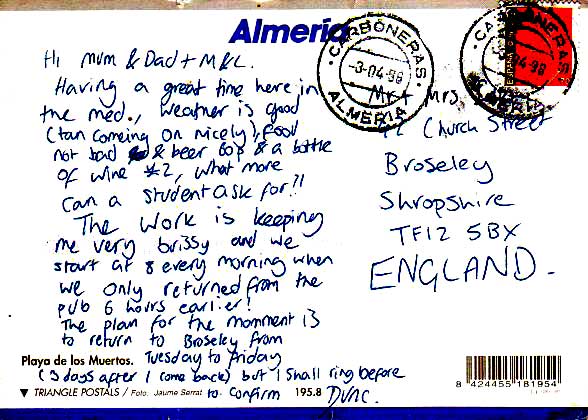 Almería
Hi Mum & Dad + M&C.
Having a great time here in
the med., weather is good
(tan comeing on nicely), food
not bad & beer 60p & a bottle
of wine £2, what more
can a student ask for?!
The work is keeping
me very brissy and we
start at 8 every morning when
we only returned from the
pub 6 hours earlier!
The plan for the momment is
to return to Broseley from
Tuesday to friday
(3 days after I come back) but I shall ring before
to confirm
Playa de los Muertos.
▼ TRIANGLE POSTALS / Foto: Jaume Serrat
195.8
CARBONERAS
-3-04-98
ALMERIA
CARBONERAS
-04-98
ALMERIA
ESPAÑA
Mr + Mrs
Church Street
Broseley
Shropshire
TF12 5BX
ENGLAND.
8 424455 181954